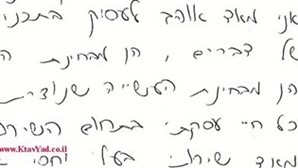 אני מאד אוהב לעסוק בתכני
של דברים, הן מבחינת ה
הן מבחינת העשייה שנוצרת
כל חיי עסקתי בתחום השירות
www.KtavYad.co.il
מאד שירותי בעל יחסי